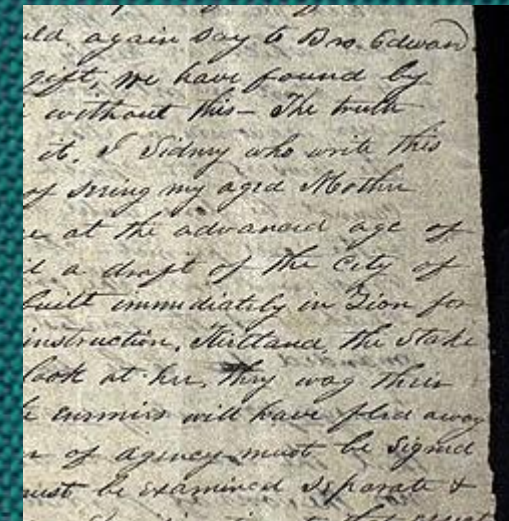 ld again say to Bro. Edward
gift, we have found by
without this— The truth
it. I Sidney who write this
of seeing my aged Mother
at the advanced age of
a draft of the City of
built immediately in Zion for
instruction, Kirtland the Stake
look at her, they wag their
enemies will have fled away
of agency must be signed
must be examined separate &